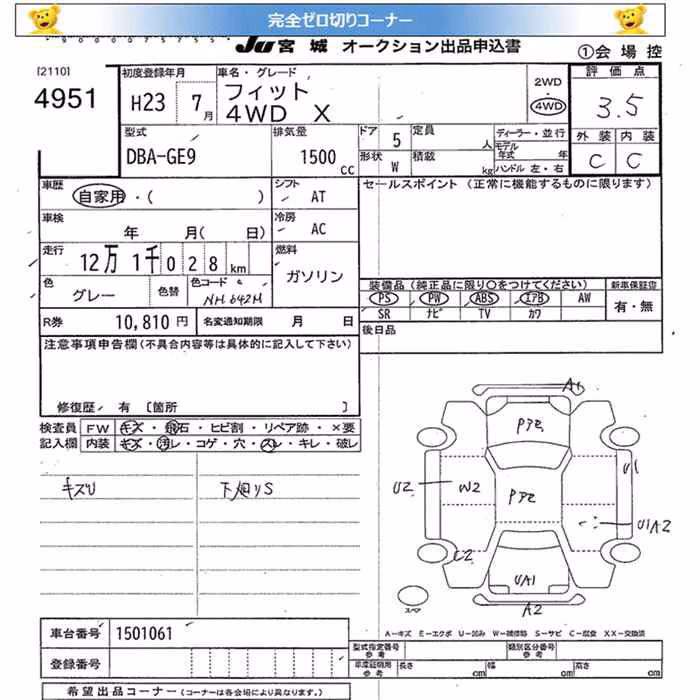 完全ゼロ切りコーナー
JU宮城 オークション出品申込書
①会場控
[2110]
4951
初度登録年月
H23 7月
車名・グレード
フィット
4WD X
2WD
4WD
評価点
3.5
外装 内装
C C
型式
DBA-GE9
排気量
1500 cc
ドア 5
定員 人
形状 W
積載 kg
ディーラー・並行
モデル年式 年
ハンドル 左・右
車歴
自家用・( )
シフト
AT
セールスポイント (正常に機能するものに限ります)
車検
年 月( 日)
冷房
AC
走行
12万1千028km
燃料
ガソリン
色
グレー
色替
色コード
NH642M
装備品 (純正品に限り○をつけてください)
PS PW ABS エアB AW
SR ナビ TV カワ
新車保証書
有・無
R券 10,810円
名変通知期限 月 日
後日品
注意事項申告欄 (不具合内容等は具体的に記入して下さい)
修復歴・有 〔箇所 〕
検査員記入欄
FW キズ・飛石・ヒビ割・リペア跡・×要
内装 キズ・汚レ・コゲ・穴・スレ・キレ・破レ
キズU
A1
U2
W2
U1
U1A2
C2
UA1
A2
スペア
A-キズ E-エクボ U-凹み W-補修跡 S-サビ C-腐食 XX-交換済
車台番号 1501061
登録番号
型式指定番号 参考
類別区分番号 参考
車庫証明用 参考
長さ cm
幅 cm
高さ cm
希望出品コーナー (コーナーは各会場により異なります。)